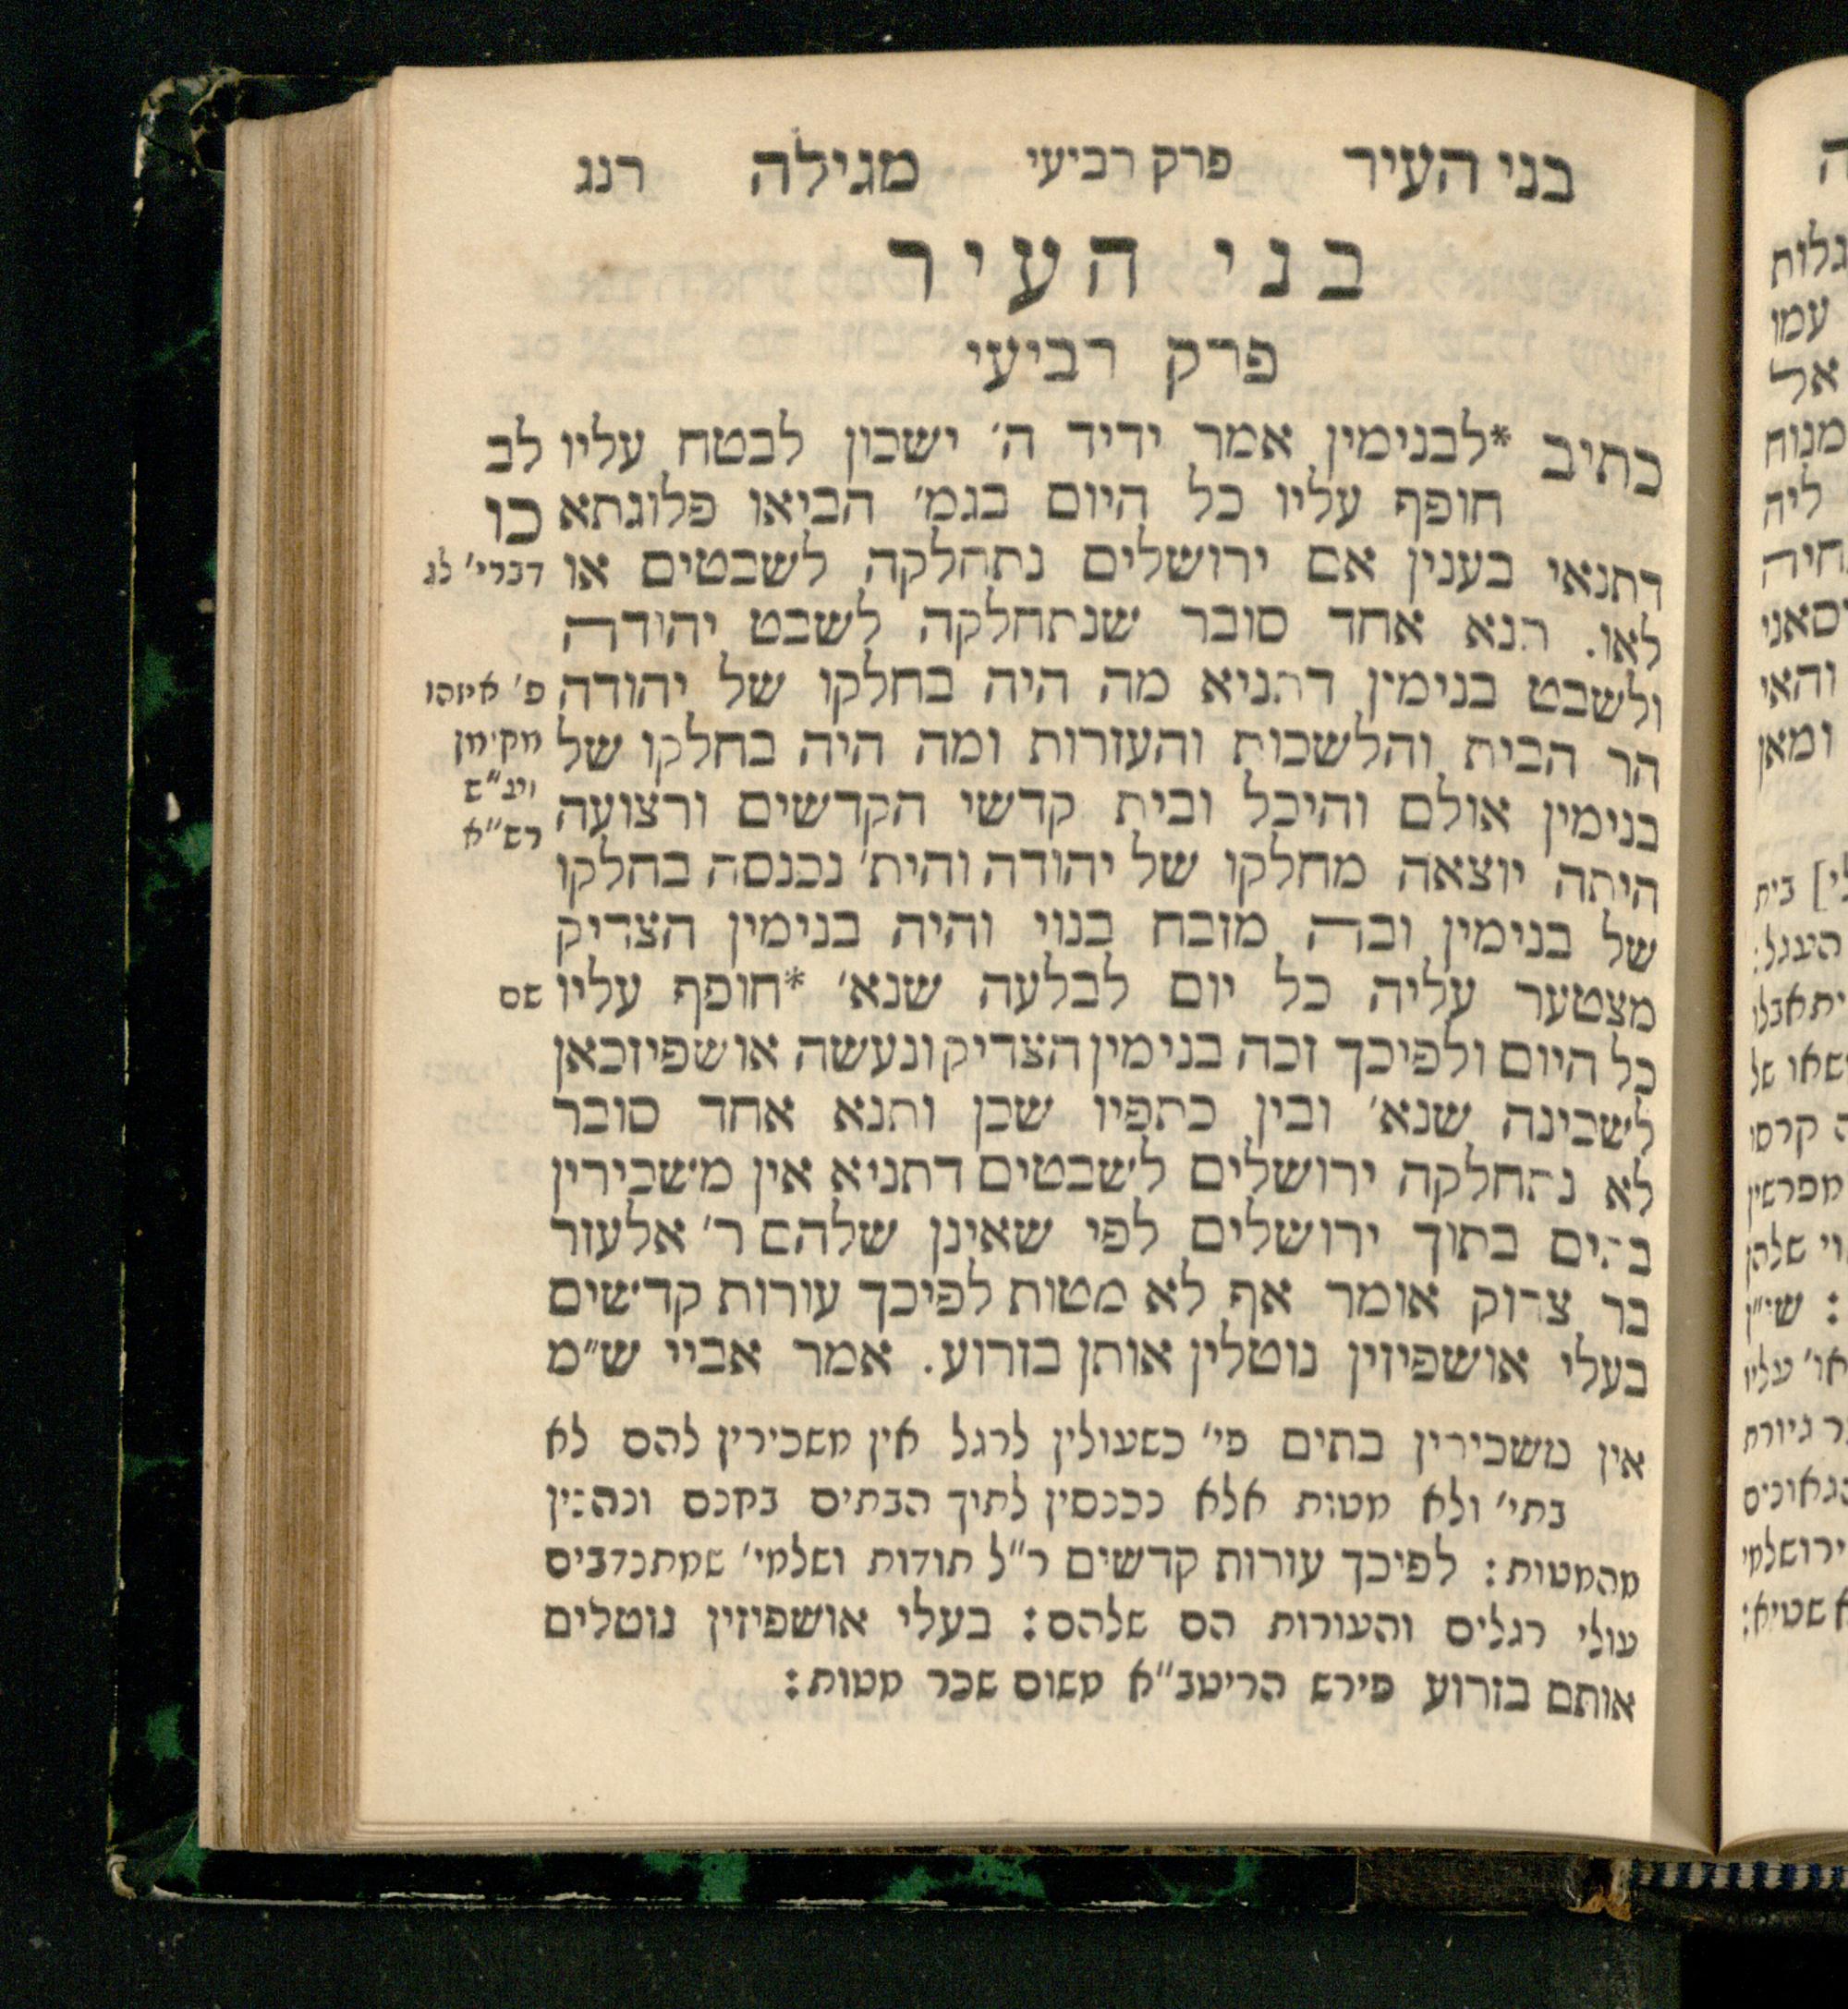 בני העיר פרק רביעי מגילה רנג
בני העיר
פרק רביעי
כתיב *לבנימין אמר ידיד ה׳ ישכון לבטח עליו לב
חופף עליו כל היום בגמ׳ הביאו פלוגתא כו
דתנאי בענין אם ירושלים נתחלקה לשבטים או דברי׳ לג
לאו. תנא אחד סובר שנתחלקה לשבט יהודה
ולשבט בנימין דתניא מה היה בחלקו של יהודה פ׳ איזהו
הר הבית והלשכות והעזרות ומה היה בחלקו של מקימן
בנימין אולם והיכל ובית קדשי הקדשים ורצועה
רש״א
היתה יוצאה מחלקו של יהודה והית׳ נכנסה בחלקו
של בנימין ובה מזבח בנוי והיה בנימין הצדיק
מצטער עליה כל יום לבלעה שנא׳ *חופף עליו שם
כל היום ולפיכך זכה בנימין הצדיק ונעשה אושפיזכאן
לשכינה שנא׳ ובין כתפיו שכן ותנא אחד סובר
לא נתחלקה ירושלים לשבטים דתניא אין משכירין
בתים בתוך ירושלים לפי שאינן שלהם ר׳ אלעזר
בר צדוק אומר אף לא מטות לפיכך עורות קדשים
בעלי אושפיזין נוטלין אותן בזרוע. אמר אביי ש״מ
אין משכירין בתים פי׳ כשעולין לרגל אין משכירין להם לא
בתי׳ ולא מטות אלא נכנסין לתוך הבתים בחנם ונהנין
מהמטות: לפיכך עורות קדשים ר״ל תודות ושלמי׳ שמתנדבים
עולי רגלים והעורות הם שלהם: בעלי אושפיזין נוטלים
אותם בזרוע פירש הריטב״א משום שכר מטות:
ה
גלות
עמו
אל
מנוח
ליה
והאי
ומאן
בית
העגל:
קרסו
מפרשין
שלהן
עליו
גיורת
שטיא: